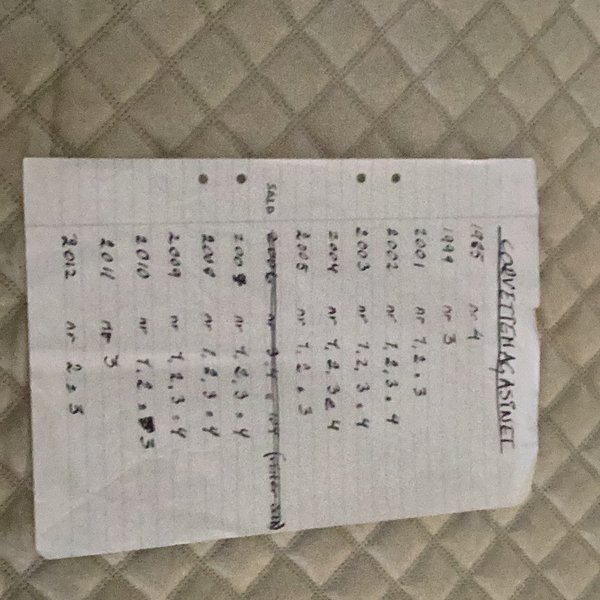 CORVETTEMAGASINET
1985 nr 4
1999 nr 3
2001 nr 1, 2 o 3
2002 nr 1, 2, 3 o 4
2003 nr 1, 2, 3 o 4
2004 nr 1, 2, 3 o 4
2005 nr 1, 2 o 3
SÅLD 2006 nr
nr 1, 2, 3 o 4
nr 1, 2, 3 o 4
2009 nr 1, 2, 3 o 4
2010 nr 1, 2 o 3
2011 nr 3
2012 nr 2 o 3